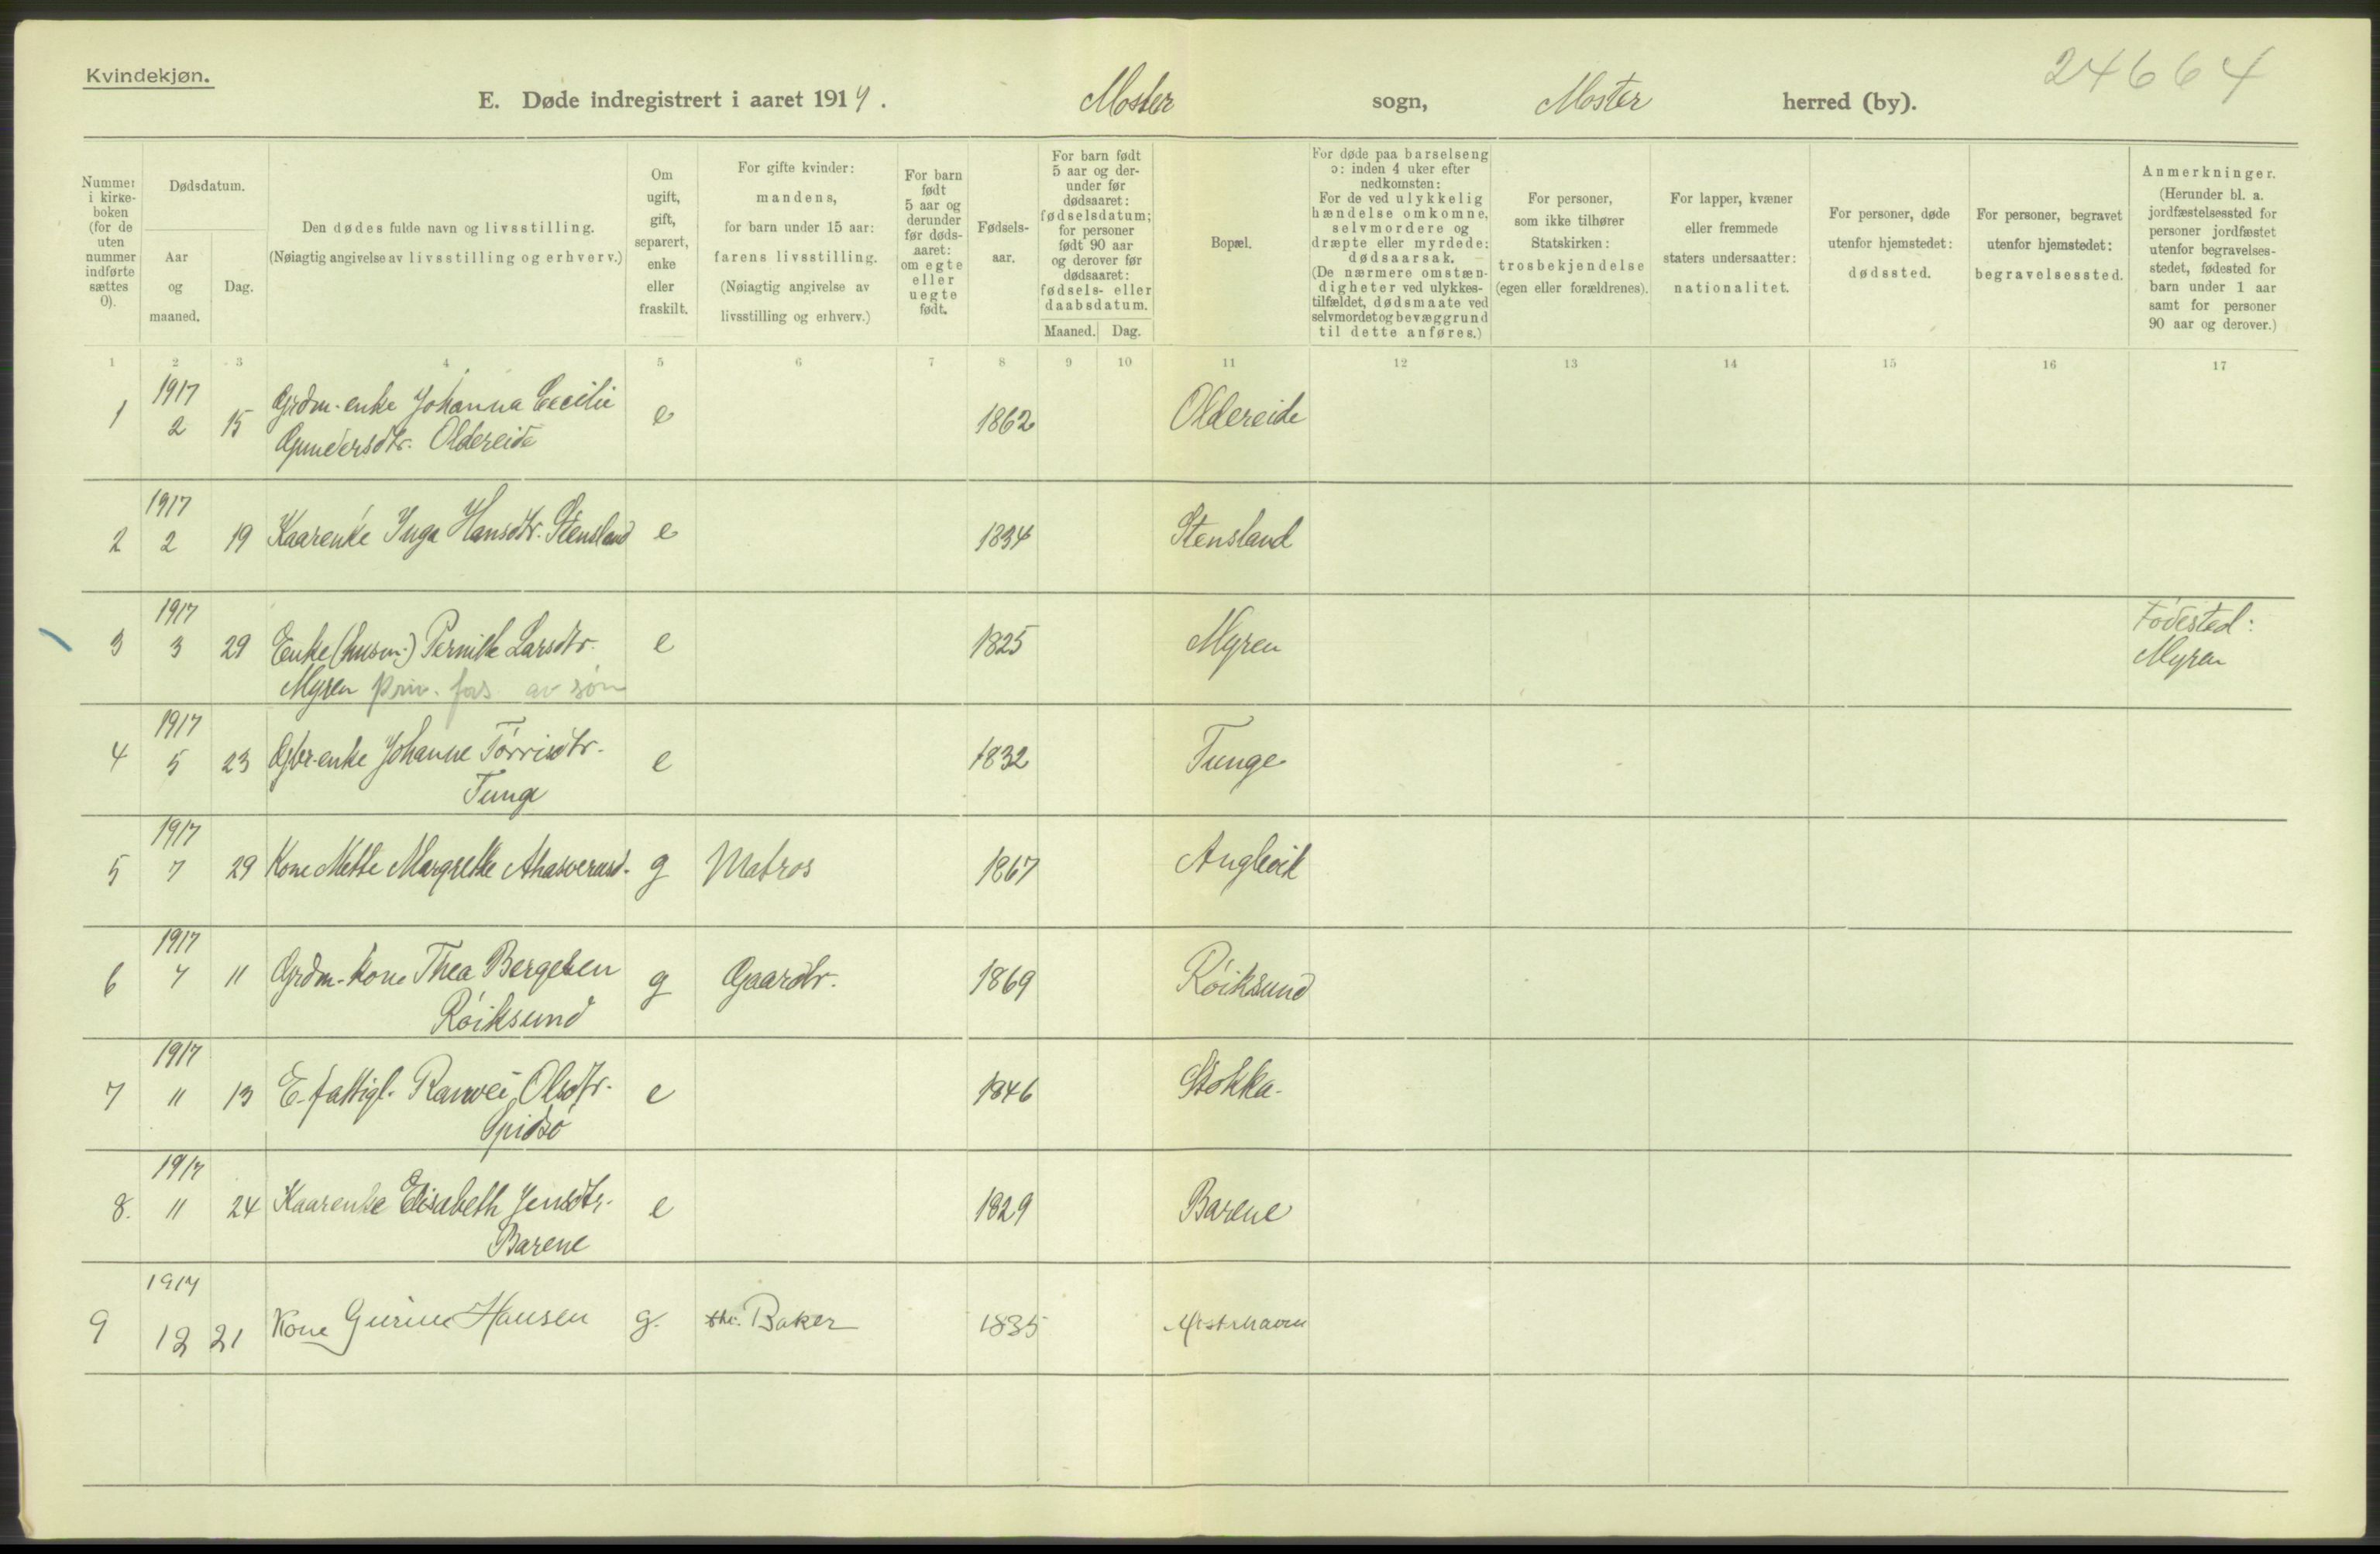 Kvindekjøn.
24664
E. Døde indregistrert i aaret 1917. Moster sogn, Moster herred (by).
Nummer i kirkeboken (for de uten nummer indførte sættes 0).
Dødsdatum.
Aar og maaned.
Dag.
Den dødes fulde navn og livsstilling.
(Nøiagtig angivelse av livsstilling og erhverv.)
Om ugift, gift, separert, enke eller fraskilt.
For gifte kvinder: mandens, for barn under 15 aar: farens livsstilling.
(Nøiagtig angivelse av livsstilling og erhverv.)
For barn født 5 aar og derunder før dødsaaret: om egte eller uegte født.
Fødselsaar.
For barn født 5 aar og derunder før dødsaaret: fødselsdatum; for personer født 90 aar og derover før dødsaaret: fødsels- eller daabsdatum.
Maaned. Dag.
Bopæl.
For døde paa barselseng ɔ: inden 4 uker efter nedkomsten:
For de ved ulykkelig hændelse omkomne, selvmordere og dræpte eller myrdede: dødsaarsak.
(De nærmere omstændigheter ved ulykkestilfældet, dødsmaate ved selvmordet og bevæggrund til dette anføres.)
For personer, som ikke tilhører Statskirken: trosbekjendelse (egen eller forældrenes).
For lapper, kvæner eller fremmede staters undersaatter: nationalitet.
For personer, døde utenfor hjemstedet: dødssted.
For personer, begravet utenfor hjemstedet: begravelsessted.
Anmerkninger.
(Herunder bl. a. jordfæstelsessted for personer jordfæstet utenfor begravelsesstedet, fødested for barn under 1 aar samt for personer 90 aar og derover.)
1 2 3 4 5 6 7 8 9 10 11 12 13 14 15 16 17
1917
1 2 15 Grdm.enke Johanna Cecilie e 1862 Oldereide
Gundersdtr. Oldereide
1917
2 2 19 Kaarenke Inga Hansdtr. Stensland e 1834 Stensland
1917
3 3 29 Enke (husm.) Pernille Larsdtr. e 1825 Myren Fødested:
Myren priv. fors av søn Myren
1917
4 5 23 enke Johanne Torrisdtr. e 1832 Tunge
Tunge
1917
5 7 29 Kone Mette Margrethe Ahasverusd. g Matros 1867
1917
6 7 11 Grdm.kone Thea Bergesen g Gaardbr. 1869 Røiksund
Røiksund
1917
7 11 13 E. fattigl. Ranvei Olsdtr. e 1846 Stokka.
Spidsø
1917
8. 11 24 Kaarenke Elisabeth Jensdtr. e 1829 Barene
Barene
1917
9 12 21 Kone Gurine Hansen g. Baker 1835